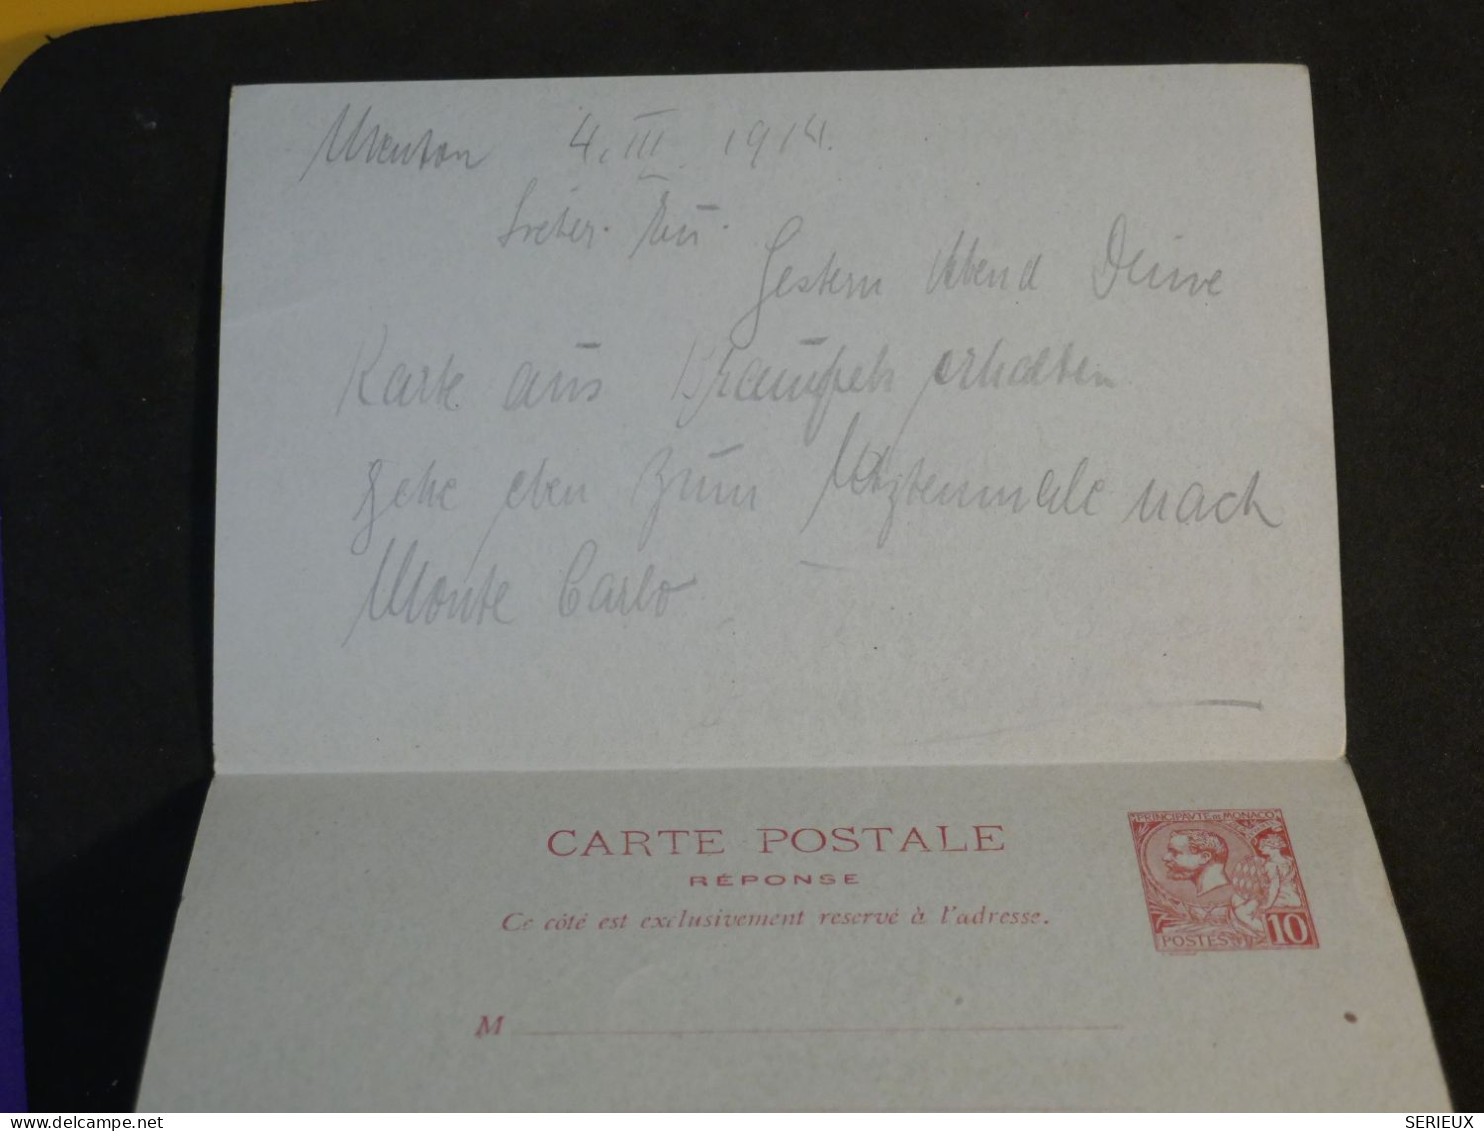 Menton 4. III. 1914.
Gestern Abend Deine
Karte aus erhalten
gehe eben zum letztenmale nach
Monte Carlo
CARTE POSTALE
RÉPONSE
Ce côté est exclusivement reservé à l'adresse.
PRINCIPAVTE DE MONACO
POSTES 10
M
SERIEUX